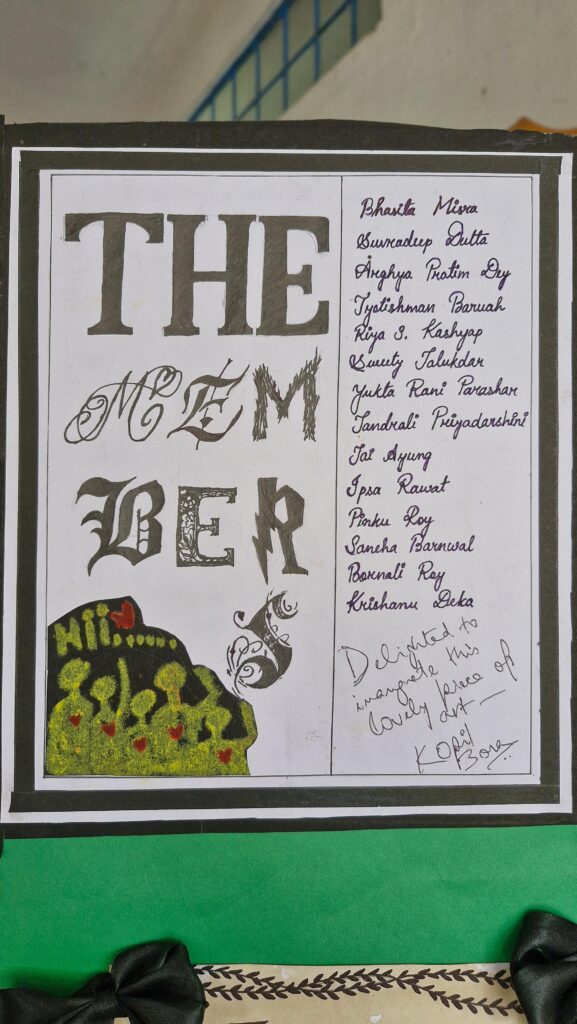 THE
MEM
BER
S
Hii......
Bhasita Misra
Suvradeep Dutta
Arghya Pratim Dey
Jyotishman Baruah
Riya S. Kashyap
Sweety Talukdar
Yukta Rani Parashar
Tandrali Priyadarshini
Tai Ayung
Ipsa Rawat
Pinku Roy
Sancha Barnwal
Bornali Roy
Krishanu Deka
Delighted to
inaugrate this
lovely piece of
art —
Kopil
Bora